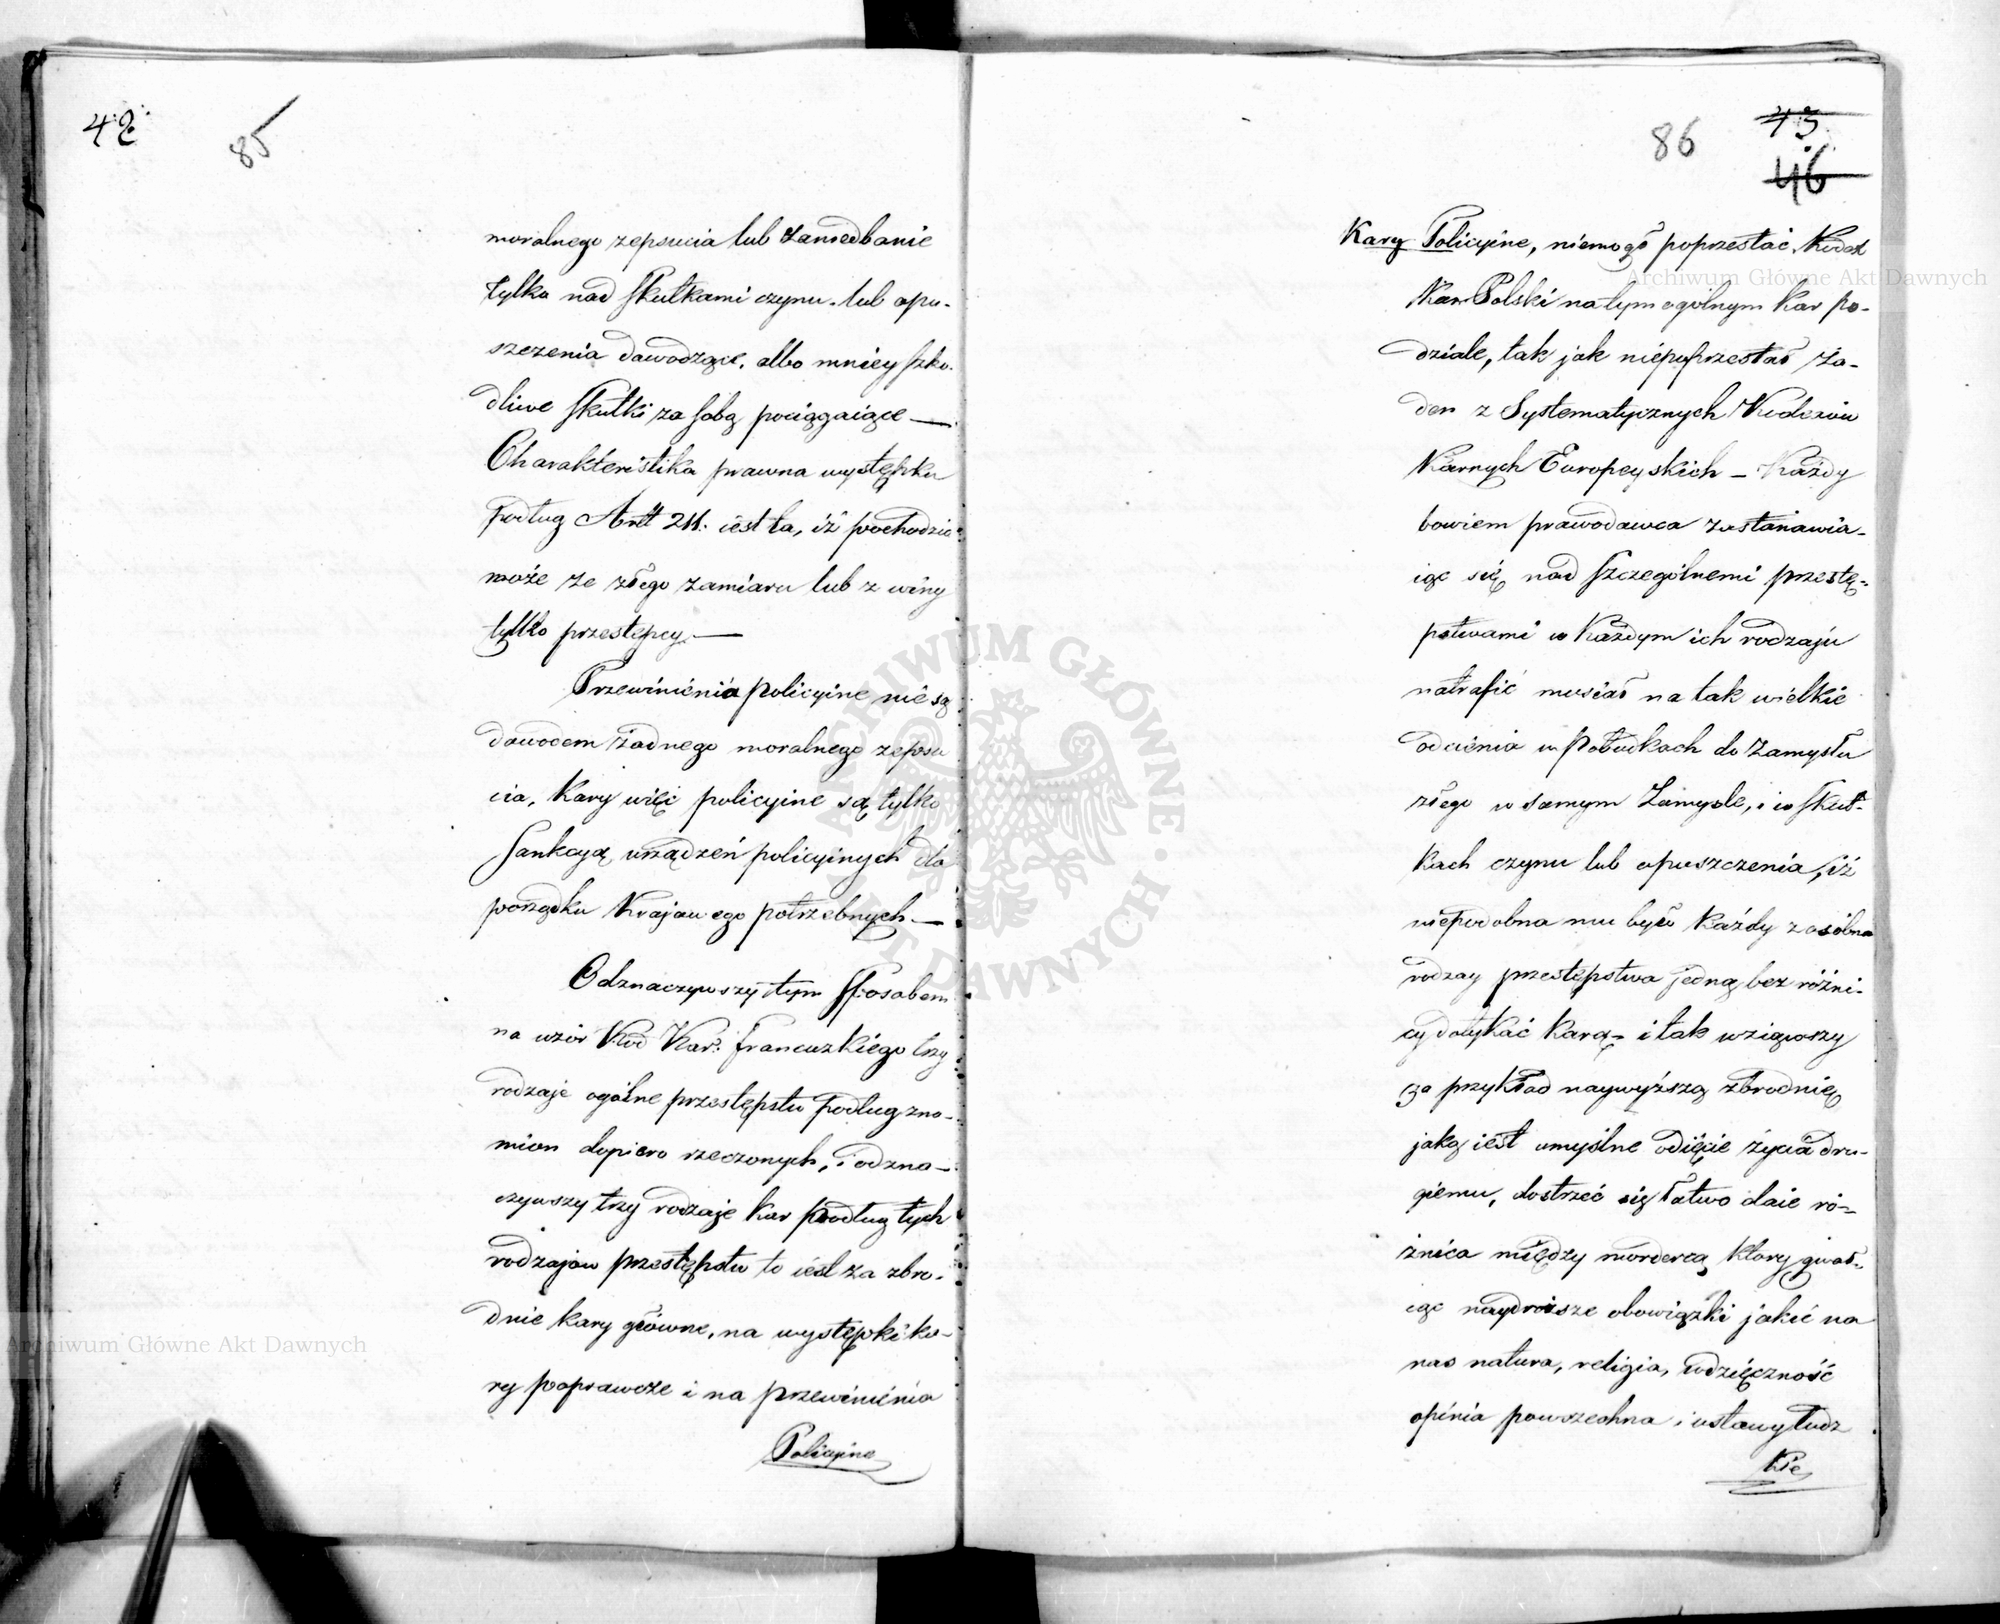 42
85
moralnego zepsucia lub zaniedbanie
tylko nad skutkami czynu lub opu-
szczenia dowodzące, albo mniey szko-
dliwe skutki za sobą pociągaiące —
Charakteristika prawna występku
podług Artt 211. iest ta, iż pochodzić
może ze złego zamiaru lub z winy
tylko przestępcy —
Przewinienia policyine nie są
dowodem żadnego moralnego zepsu
cia, Kary więc policyine są tylko
Sankcyą urządzeń policyinych dla
porządku Krajowego potrzebnych —
Odznaczywszy tym sposobem
na wzór Kod Kar: francuzkiego trzy
rodzaje ogólne przestępstw podług zna-
mion dopiero rzeczonych, i odzna-
czywszy trzy rodzaje kar podług tych
rodzajów przestępstw to iest za zbro-
dnie kary główne, na występki ka-
ry poprawcze i na przewinienia
Policyine
86
43
46
Kary Policyine, niemógł poprzestać Kodex
Kar Polski na tym ogólnym kar po-
dziale, tak jak niepoprzestał ża-
den z Systematycznych Kodexów
Karnych Europeyskich – Każdy
bowiem prawodawca zastanawia-
iąc się nad szczególnemi przestę-
pstwami w Każdym ich rodzaju
natrafić musiał na tak wielkie
odcienia w pobudkach do zamysłu
złego w samym Zamysle, i w skut-
kach czynu lub opuszczenia, iż
niepodobna mu było Każdy z osóbna
rodzay przestępstwa jedną bez różni-
cy dotykać Karą – i tak wziąwszy
za przykład naywyższą zbrodnię
jaką iest umyślne odięcie życia dru-
giemu, dostrzec się łatwo daie ró-
żnica między mordercą, który gwał-
cąc naydroższe obowiązki jakie na
nas natura, religia, wdzięczność
opinia powszechna i ustawy ludz
kie
Archiwum Główne Akt Dawnych
Archiwum Główne Akt Dawnych
ARCHIWUM GŁÓWNE · AKT DAWNYCH ·